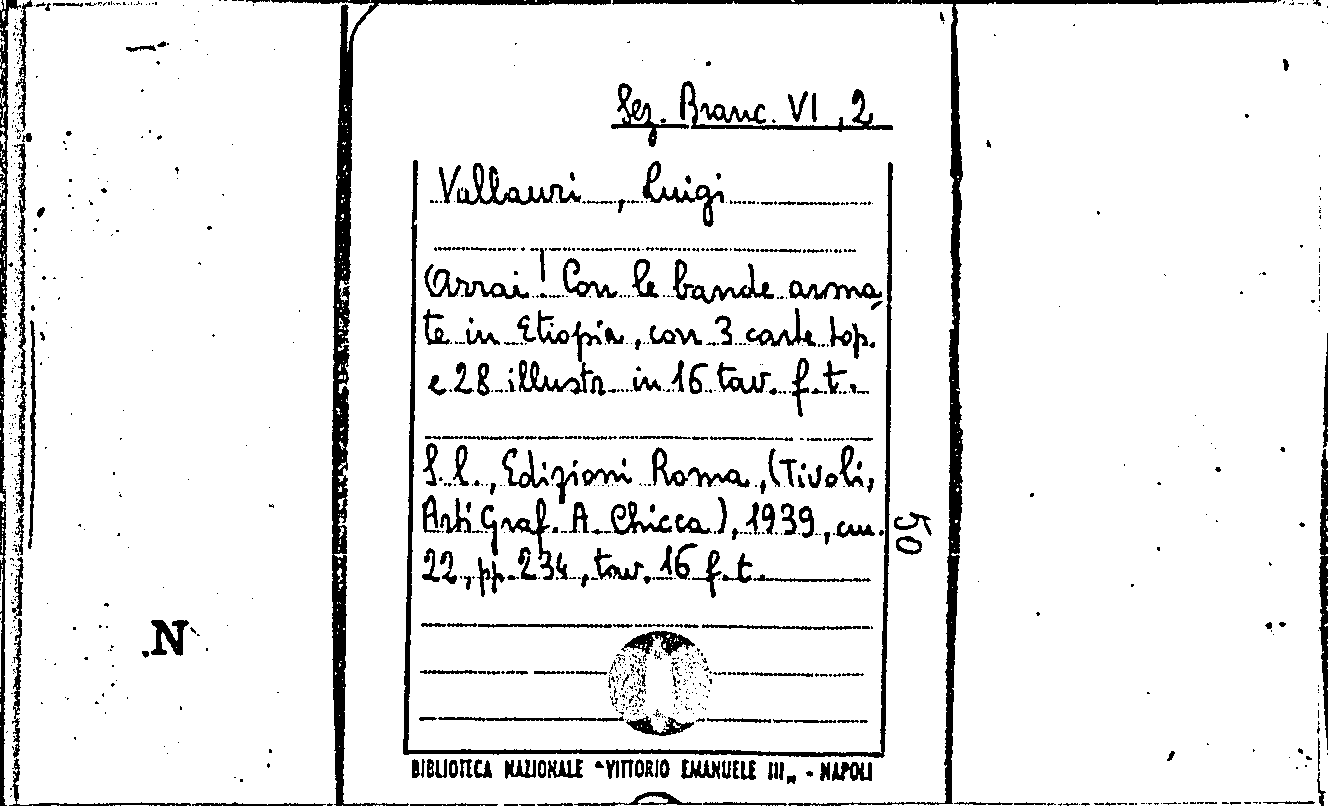 Sez. Branc. VI, 2
Vallauri, Luigi
Arrai! Con le bande arma-
te in Etiopia, con 3 carte top.
e 28 illustr. in 16 tav. f. t.
S. l., Edizioni Roma, (Tivoli,
Arti Graf. A. Chicca), 1939, cm.
22, pp. 234, tav. 16 f. t.
50
.N
BIBLIOTECA NAZIONALE "VITTORIO EMANUELE III„ - NAPOLI